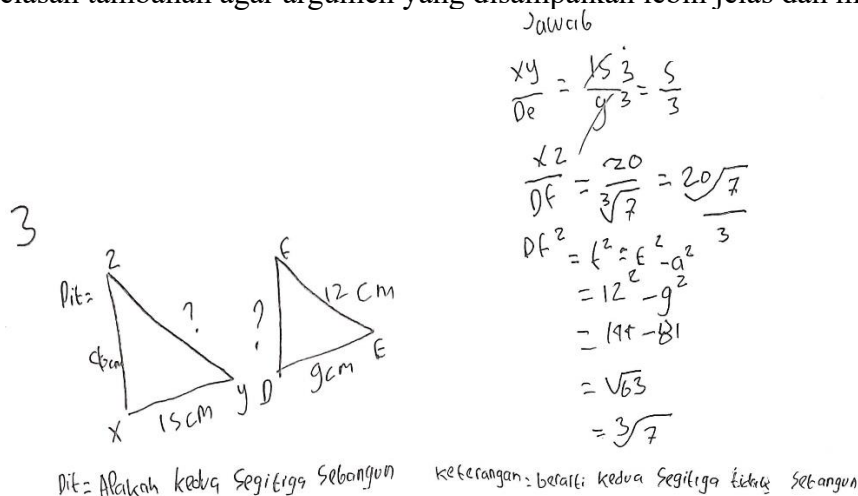 elasan tambahan agar argumen yang disampaikan lebih jelas dan m
Jawab
XY/De = 15 3/9 3 = 5/3
XZ/Df = 20/3√7 = 20√7/3
Df² = f² = E² - a²
= 12² - 9²
= 144 - 81
= √63
= 3√7
3
Dit=
Z
?
X
15 cm
y
f
12 cm
?
D
9cm
E
Dit = Apakah kedua segitiga sebangun
keterangan: berarti kedua segitiga tidak sebangun